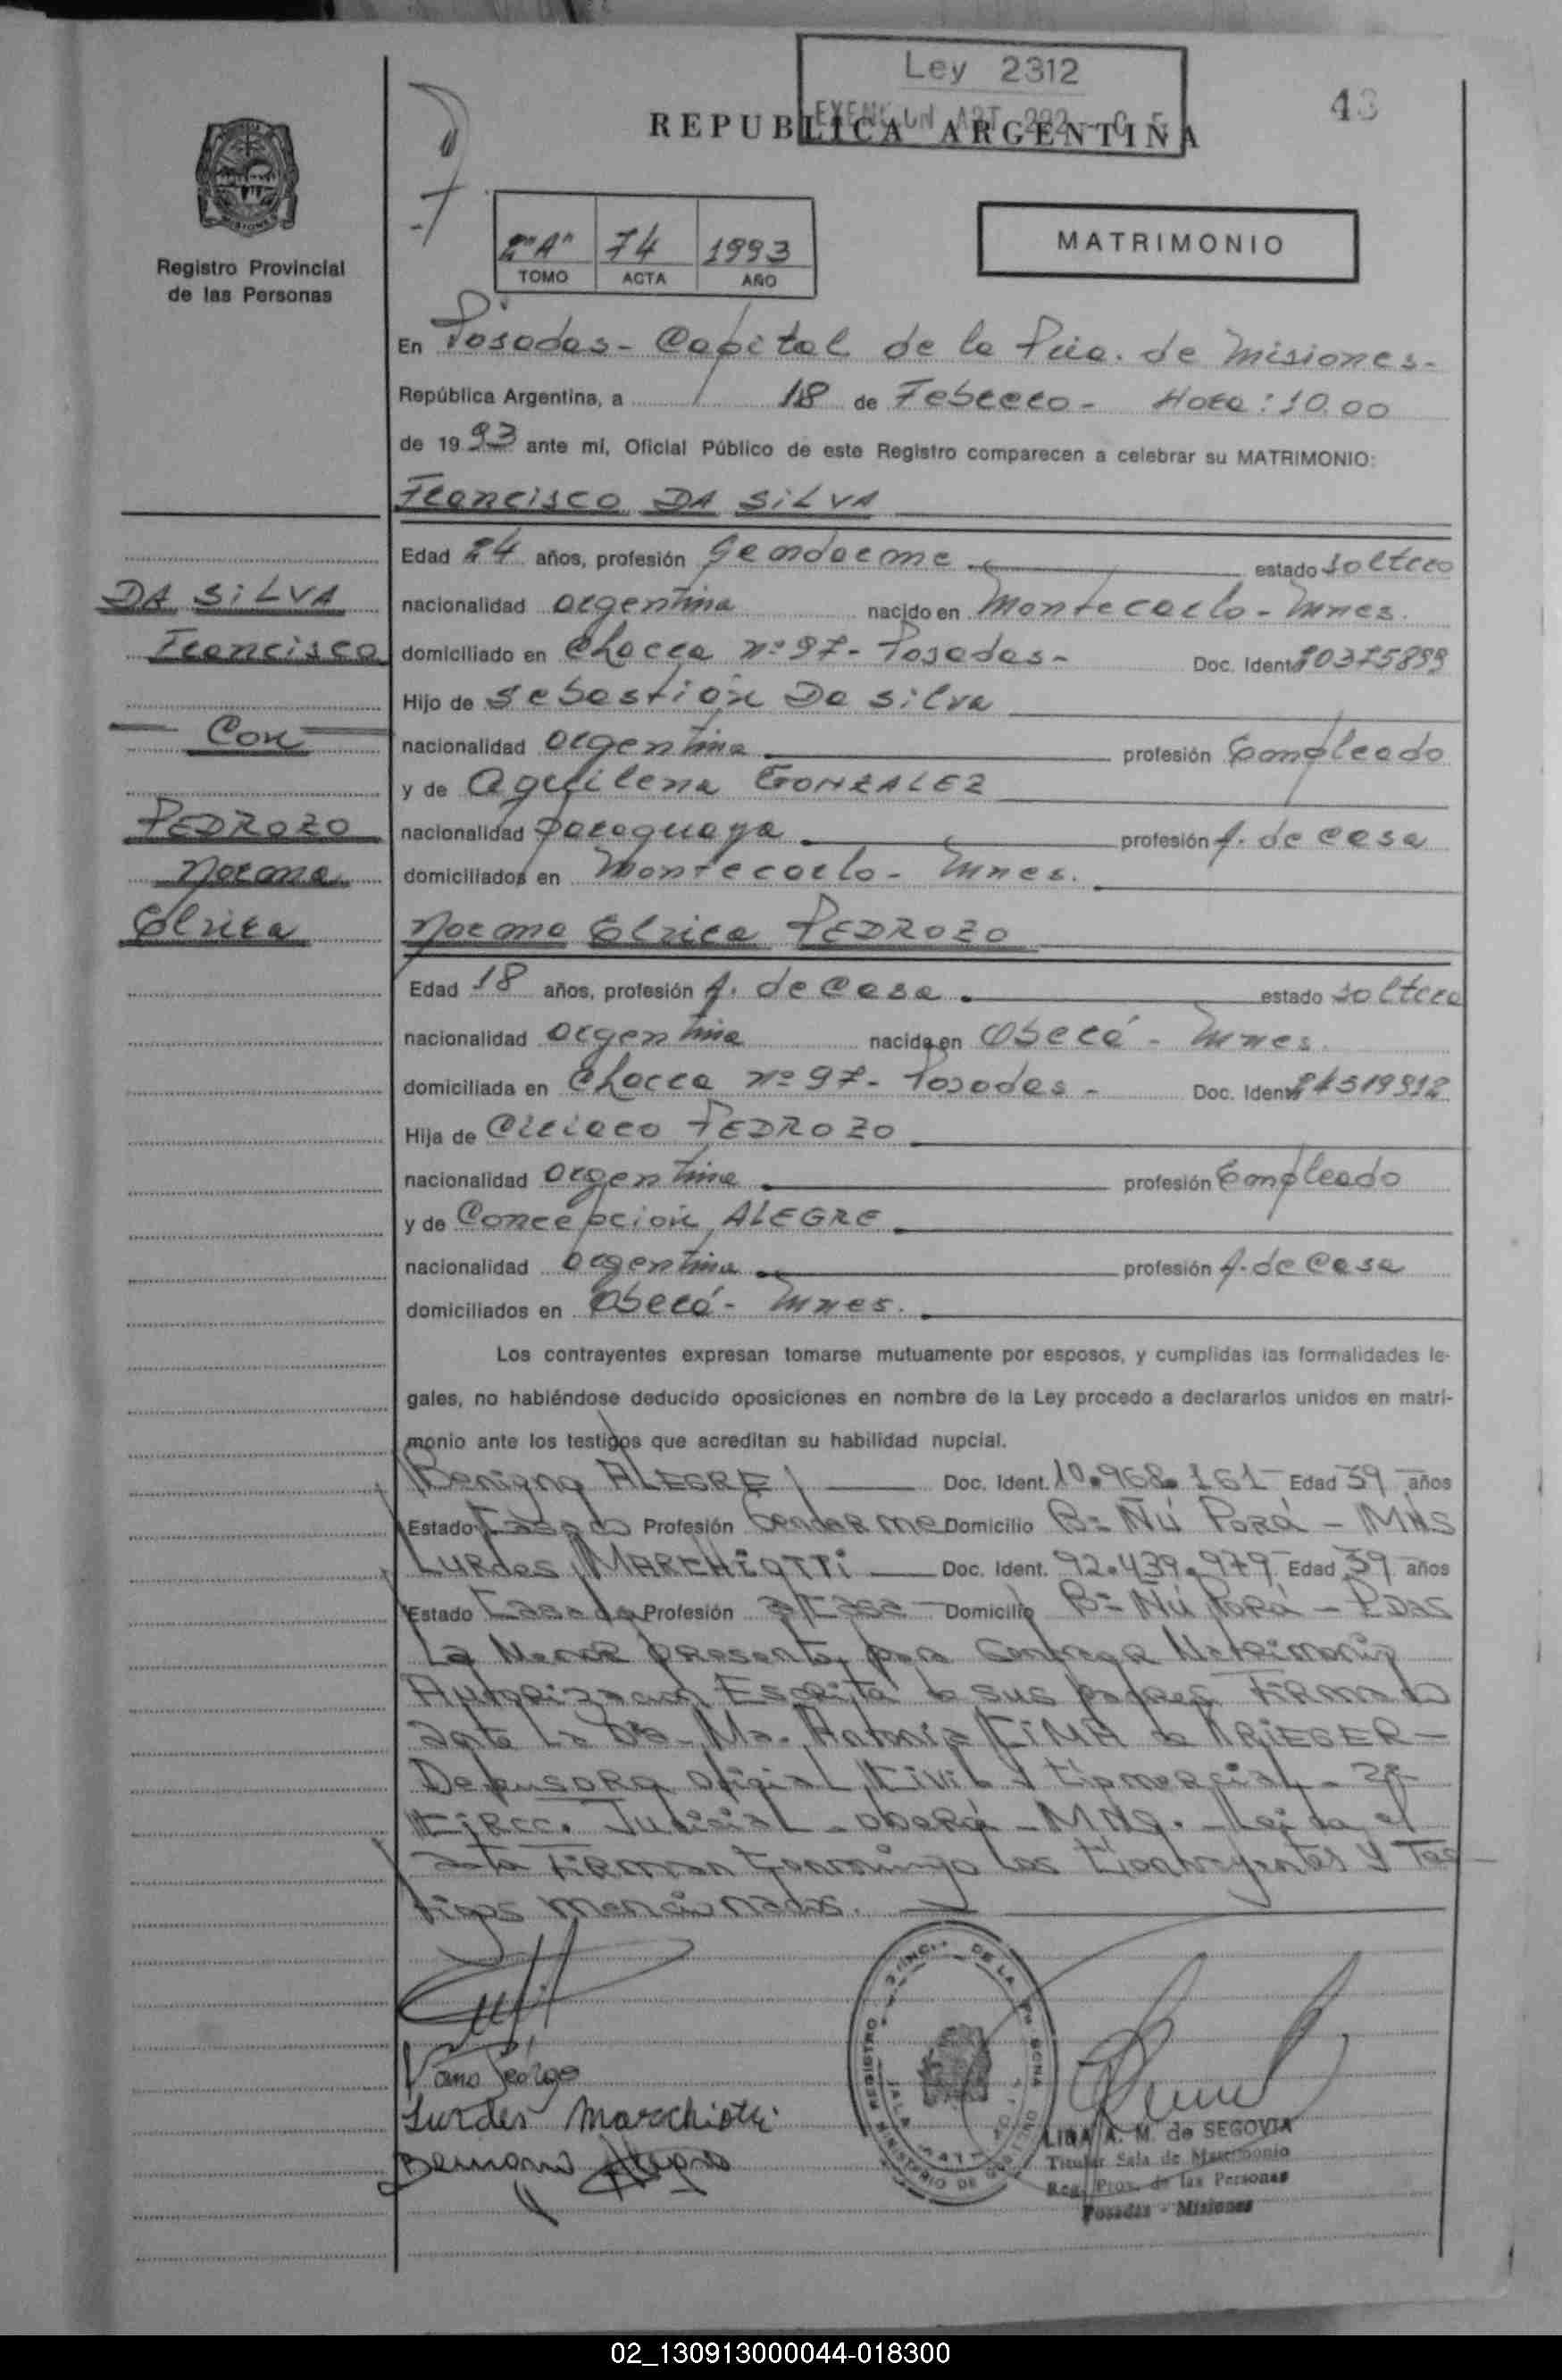 Ley 2312
EXENCION ART. 292 - C. F.
43
REPUBLICA ARGENTINA
Registro Provincial
de las Personas
2"A" 74 1993
TOMO ACTA AÑO
MATRIMONIO
En Posadas - Capital de la Pcia. de Misiones-
República Argentina, a 18 de Febrero - Hora: 10.00
de 1993 ante mi, Oficial Público de este Registro comparecen a celebrar su MATRIMONIO:
Francisco DA SiLVA
DA SiLVA
Francisco
Con
PEDROZO
Norma
Elvira
Edad 24 años, profesión Gendarme estado soltero
nacionalidad argentina nacido en Montecarlo - Mnes.
domiciliado en Chacra nº 97 - Posadas - Doc. Ident. 20375899
Hijo de Sebastián Da Silva
nacionalidad argentina profesión Empleado
y de Aquilena GONZALEZ
nacionalidad paraguaya profesión A. de Casa
domiciliados en Montecarlo - Mnes.
Norma Elvira PEDROZO
Edad 18 años, profesión A. de Casa estado soltera
nacionalidad argentina nacida en Oberá - Mnes.
domiciliada en Chacra nº 97 - Posadas - Doc. Ident. 24519912
Hija de Ciriaco PEDROZO
nacionalidad argentina profesión Empleado
y de Concepción ALEGRE
nacionalidad argentina profesión A. de Casa
domiciliados en Oberá - Mnes.
Los contrayentes expresan tomarse mutuamente por esposos, y cumplidas las formalidades le-
gales, no habiéndose deducido oposiciones en nombre de la Ley procedo a declararlos unidos en matri-
monio ante los testigos que acreditan su habilidad nupcial.
Benigno ALEGRE Doc. Ident. 10.968.161 Edad 39 años
Estado Casado Profesión Gendarme Domicilio Bº Ñú Porá - MNS
Lurdes MARCHiOTTi Doc. Ident. 92.439.979 Edad 39 años
Estado Casada Profesión a/casa Domicilio Bº Ñú Porá - PDAS
La Menor presenta para Contraer Matrimonio
Autorización Escrita de sus padres Firmado
ante la Dra. Ma. Antonia de KRiEGER -
Defensora Oficial Civil y Comercial - 2ª
Circc. Judicial - Oberá - MNS. - Leida el
acta Firman Conmigo los Contrayentes y Tes-
tigos mencionados.
Lurdes Marchiotti
LIBIA A. M. de SEGOVIA
Titular Sala de Matrimonio
Reg. Prov. de las Personas
Posadas - Misiones
02_130913000044-018300